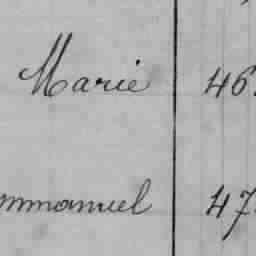 Marie 46
mmanuel 47